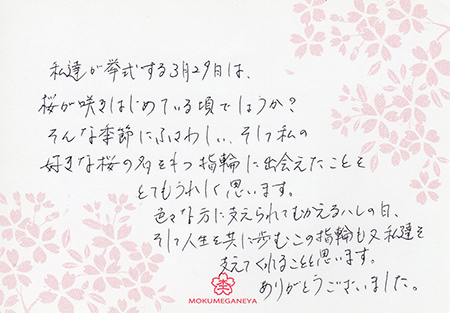 私達が挙式する3月29日は、
桜が咲きはじめている頃でしょうか?
そんな季節にふさわしい、そして私の
好きな桜の名をもつ指輪に出会えたことを
とてもうれしく思います。
色々な方に支えられてむかえるハレの日、
そして人生を共に歩むこの指輪も又私達を
支えてくれることと思います。
ありがとうございました。
MOKUMEGANEYA